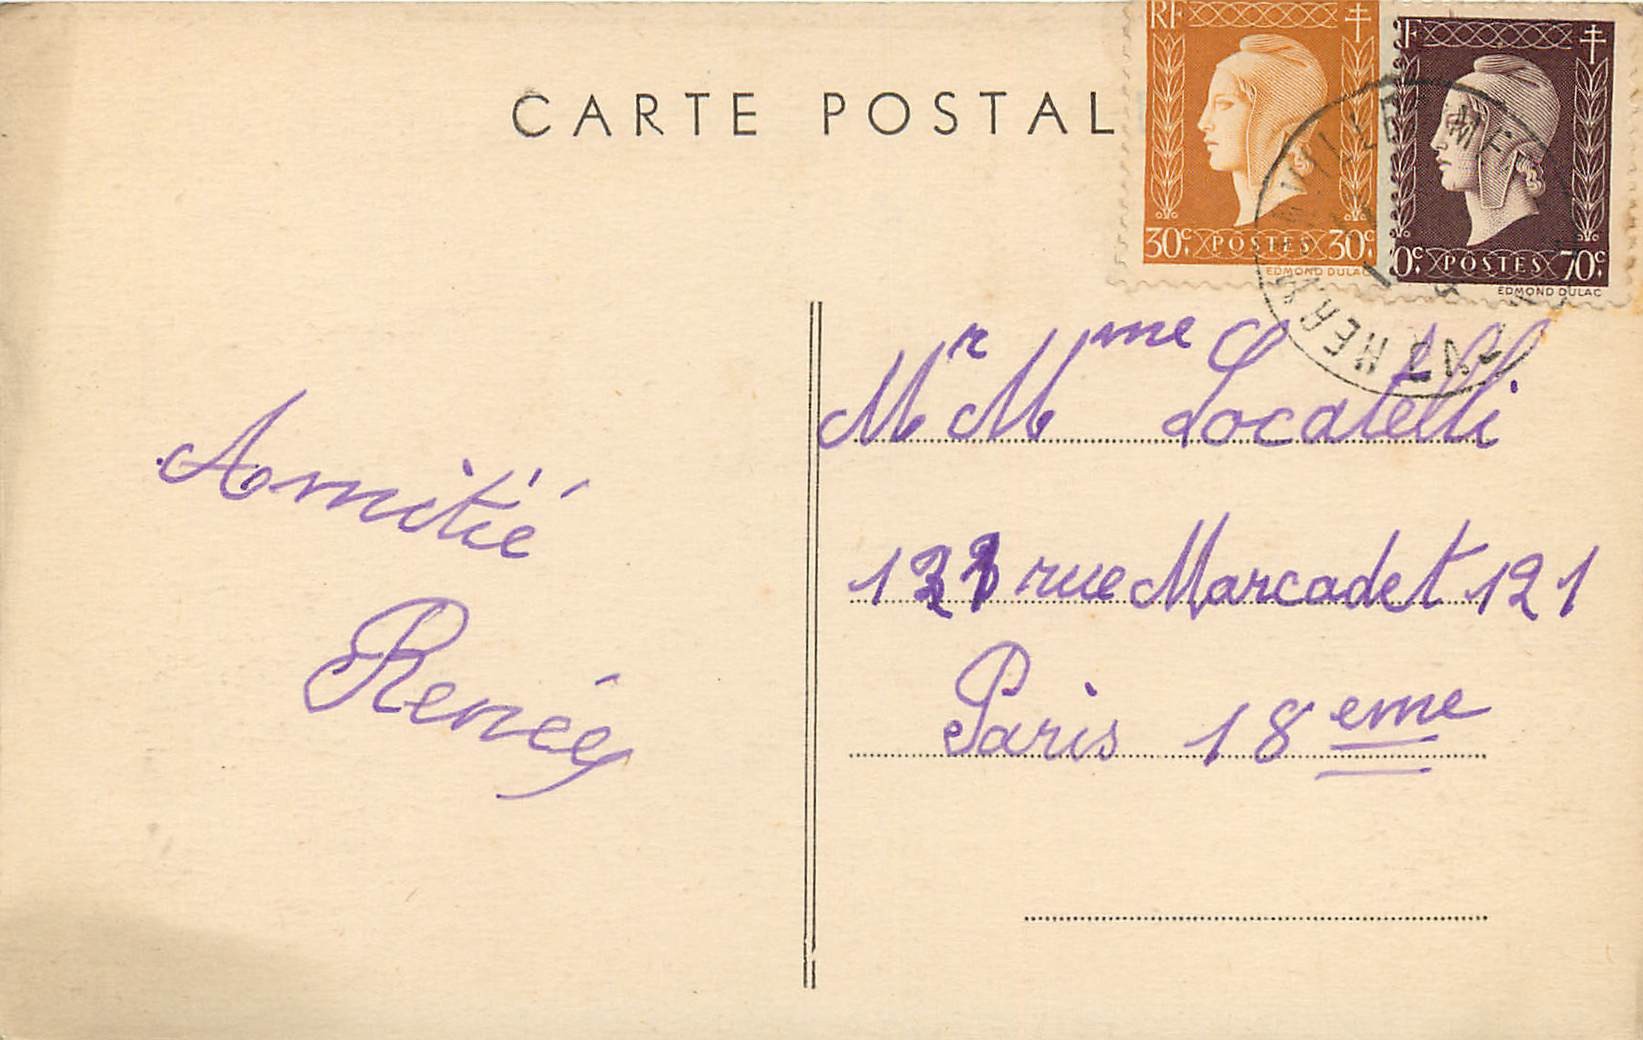 CARTE POSTAL
RF
30c. POSTES 30c.
EDMOND DULAC
F
0c. POSTES 70c.
EDMOND DULAC
Amitié
Renée
Mr Mme Locatelli
121 rue Marcadet 121
Paris 18eme